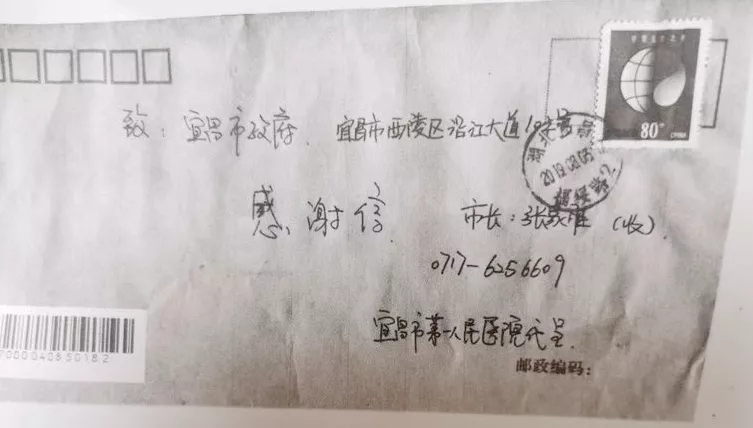 80分
CHINA
致：宜昌市政府 宜昌市西陵区沿江大道
湖北
2019.08.03
感谢信 市长：张家胜（收）
0717-6256609
宜昌市第一人民医院代呈
邮政编码：
7000040850182